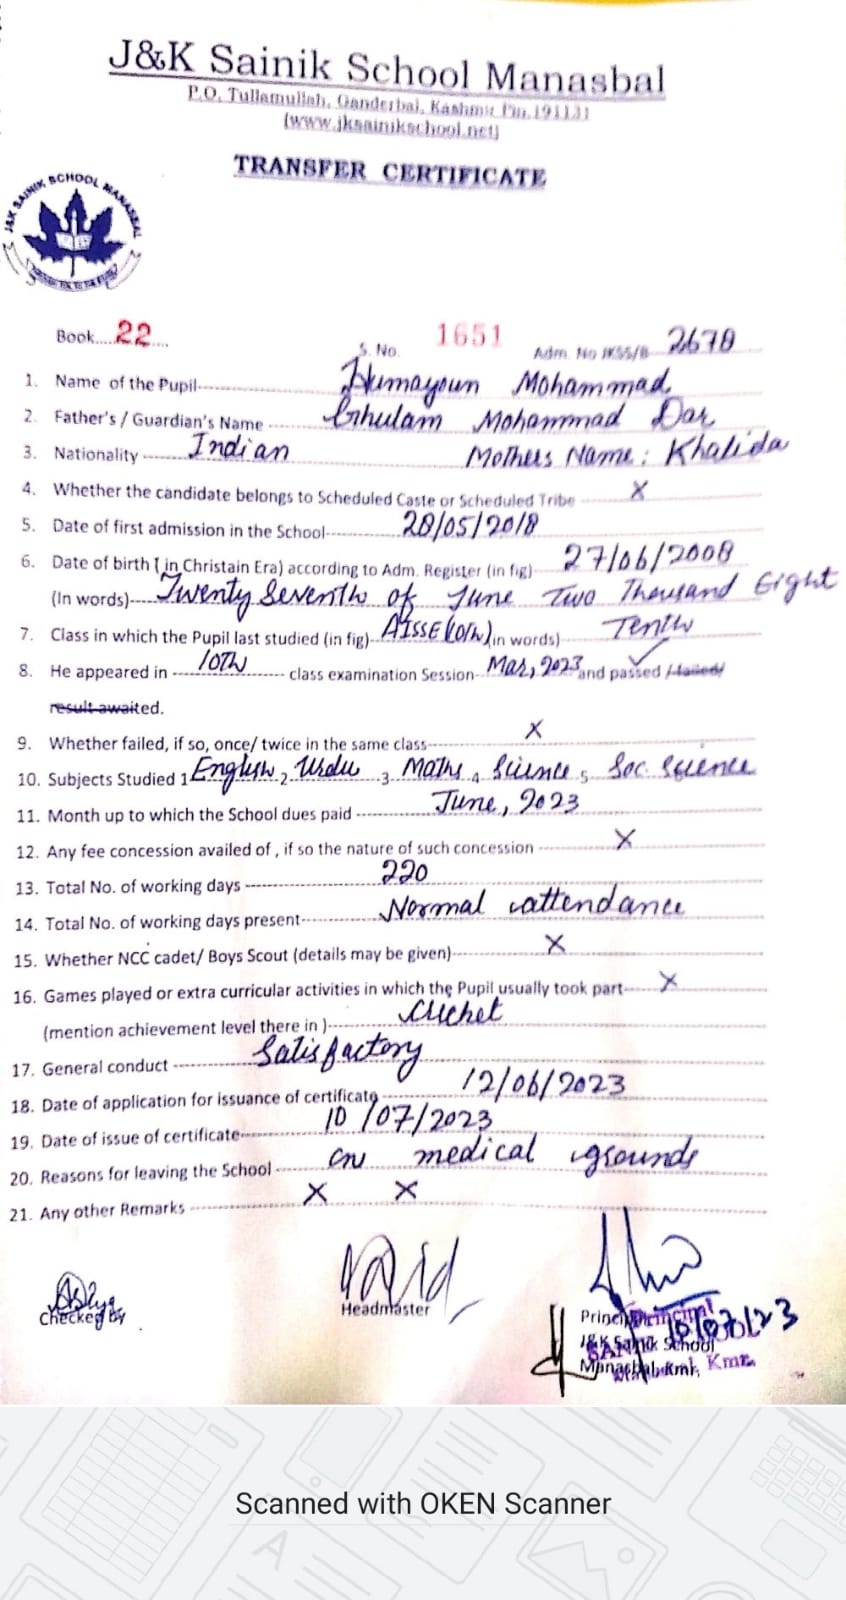 J&K Sainik School Manasbal
P.O. Tullamullah, Ganderbal, Kashmir Pin.191131
(www.jksainikschool.net)
TRANSFER CERTIFICATE
J&K SAINIK SCHOOL MANASBAL
Book.....22.... S. No. 1651 Adm. No JKSS/B 2678
1. Name of the Pupil Humayoun Mohammad
2. Father's / Guardian's Name Ghulam Mohammad Dar
3. Nationality Indian Mothers Name: Khalida
4. Whether the candidate belongs to Scheduled Caste or Scheduled Tribe X
5. Date of first admission in the School 28/05/2018
6. Date of birth ( in Christain Era) according to Adm. Register (in fig) 27/06/2008
(In words) Twenty Seventh of June Two Thousand Eight
7. Class in which the Pupil last studied (in fig) AISSE (10th) in words) Tenth
8. He appeared in 10th class examination Session Mar, 2023 and passed / failed/
result awaited.
9. Whether failed, if so, once/ twice in the same class X
10. Subjects Studied 1 English 2 Urdu 3 Maths 4 Science 5 Soc. Science
11. Month up to which the School dues paid June, 2023
12. Any fee concession availed of , if so the nature of such concession X
13. Total No. of working days 220
14. Total No. of working days present Normal attendance
15. Whether NCC cadet/ Boys Scout (details may be given) X
16. Games played or extra curricular activities in which the Pupil usually took part X
(mention achievement level there in ) Cricket
17. General conduct Satisfactory
18. Date of application for issuance of certificate 12/06/2023
19. Date of issue of certificate 10/07/2023
20. Reasons for leaving the School on medical grounds
21. Any other Remarks X X
Checked by Headmaster Principal
10/07/23
J&K Sainik School
Manasbal, Kmr.
Scanned with OKEN Scanner